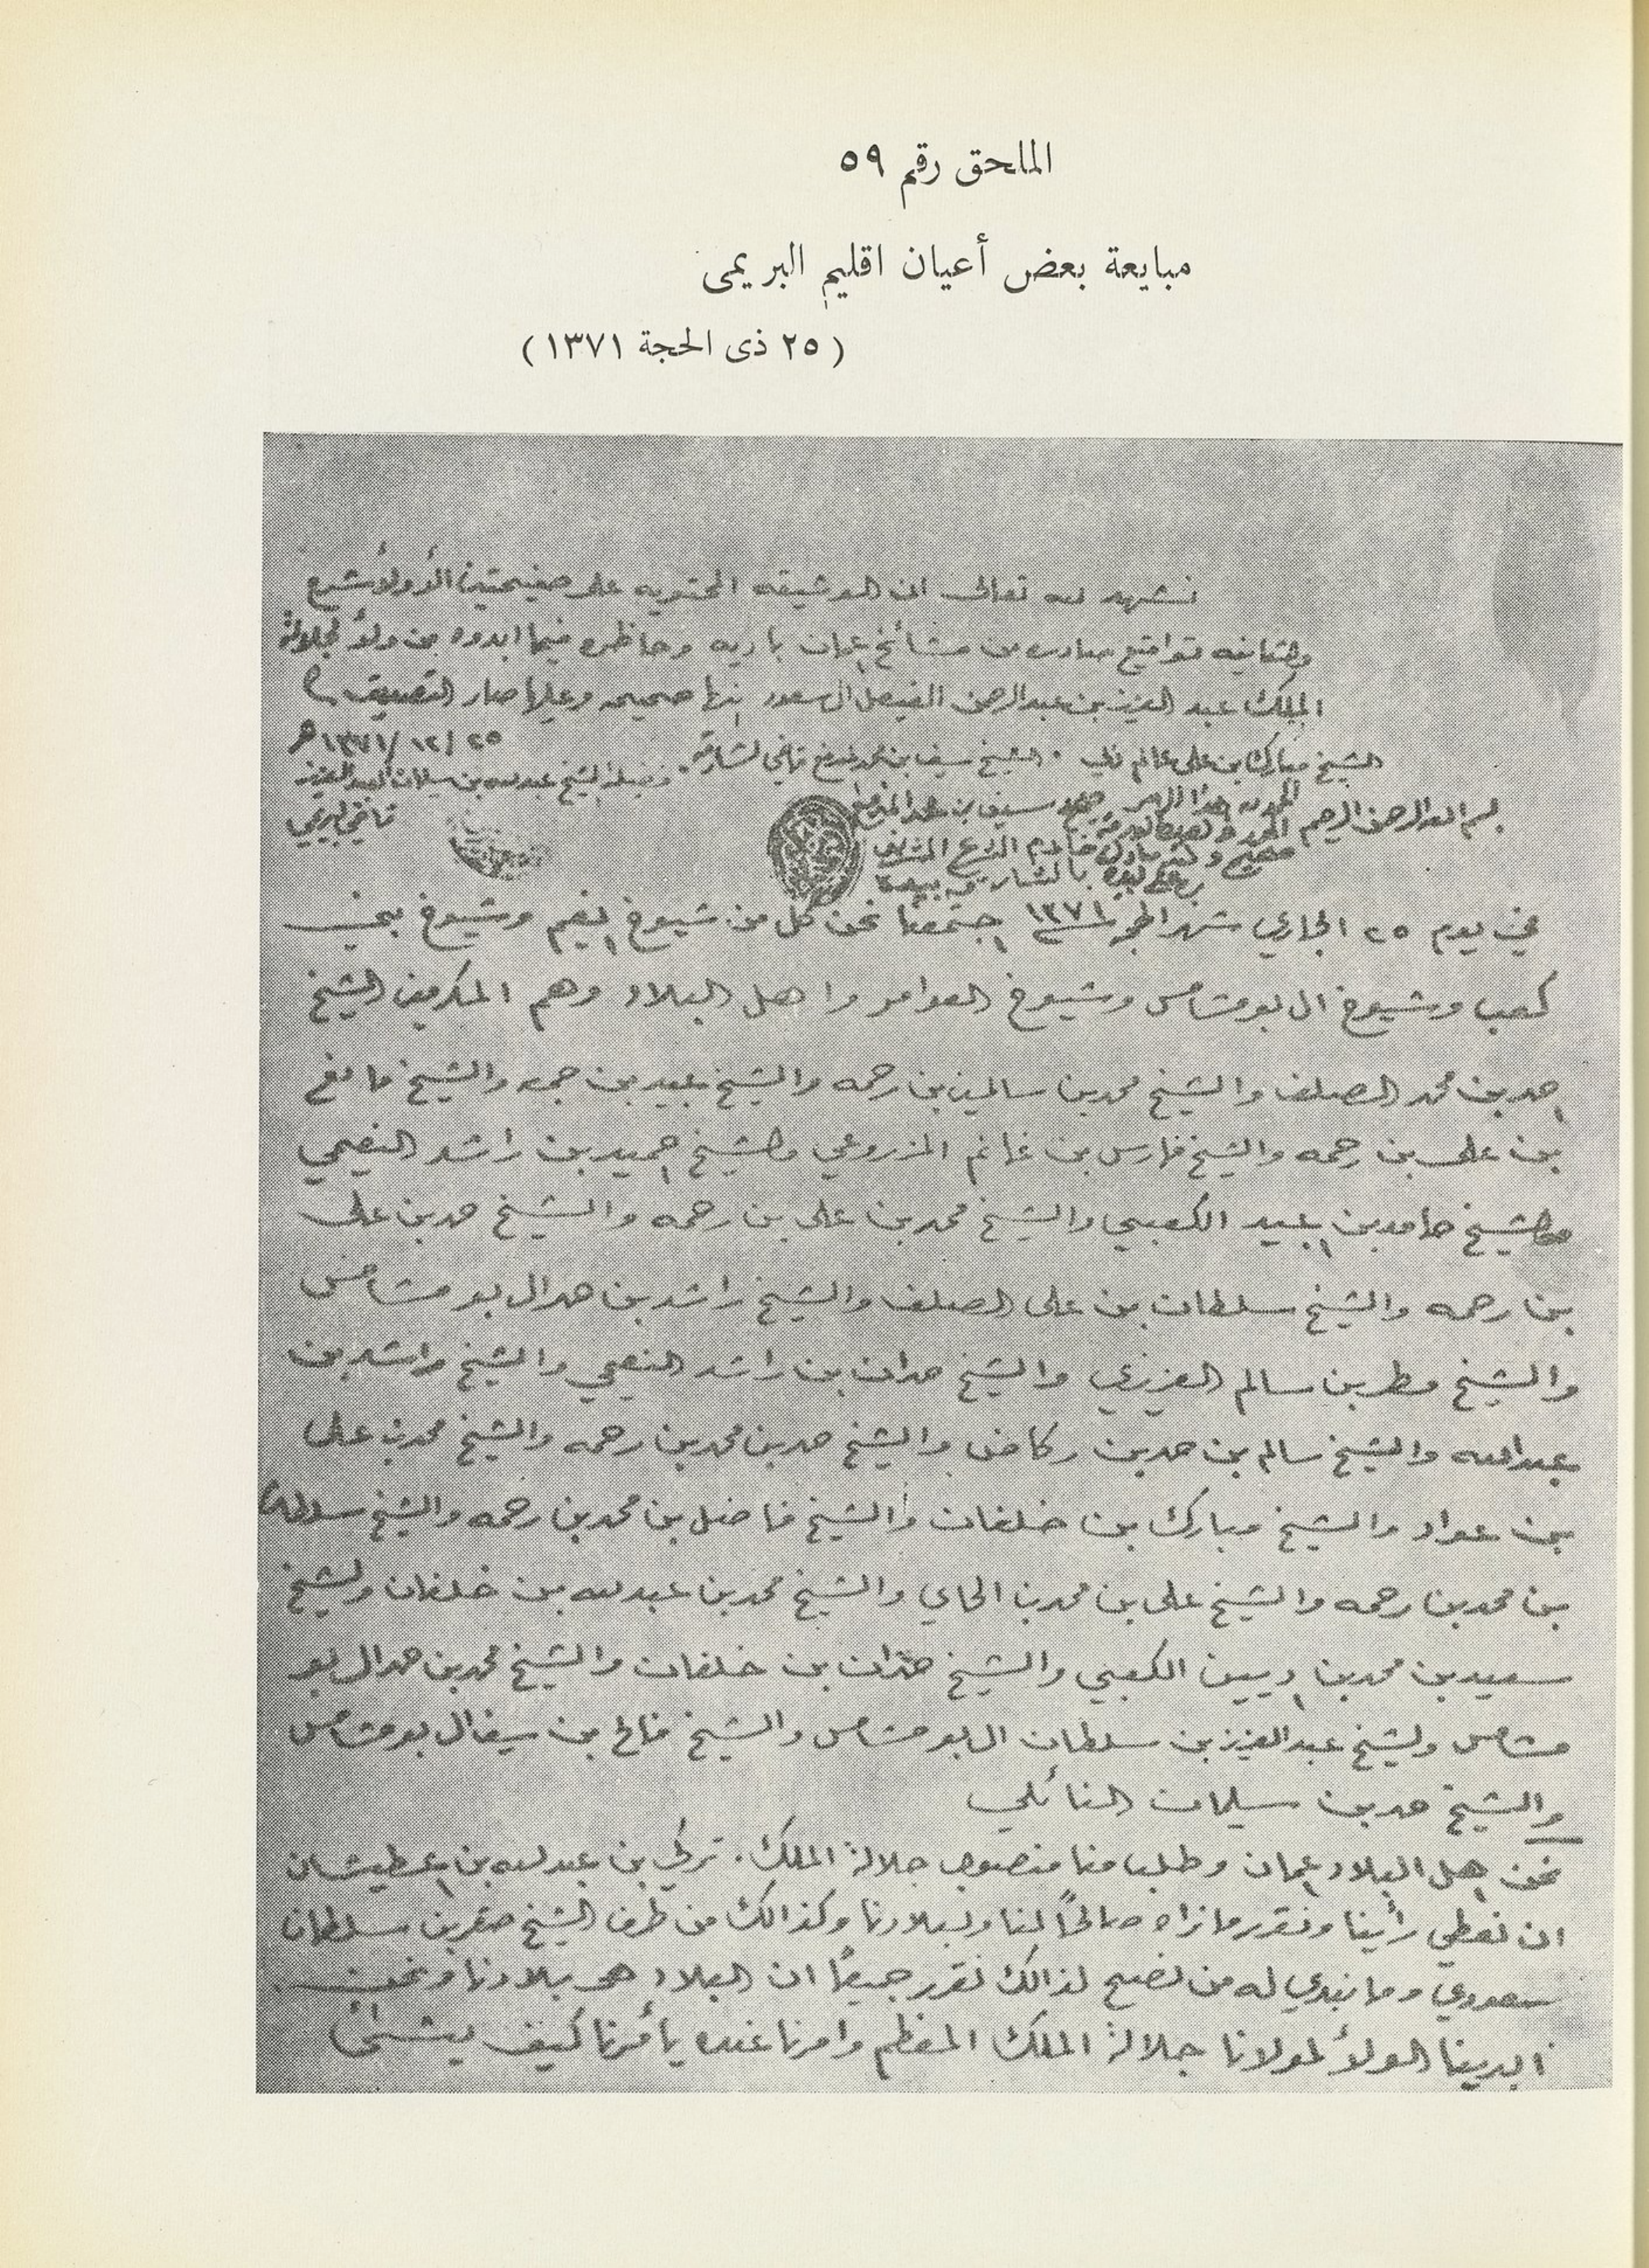 الملحق رقم ٥٩
مبايعة بعض أعيان اقليم البريمى
(٢٥ ذى الحجة ١٣٧١)
نشهد لله تعالى ان الوثيقه المحتويه على صفيحتين الأولا شرع
والثانيه تواقيع صادره من مشائخ عمان باديه وحاظره فيما ابدوه من ولاؤ لجلالة
الملك عبد العزيز بن عبد الرحمن الفيصل ال سعود انها صحيحه وعليها صار التصديق
٢٥/١٢/١٣٧١ هـ
الشيخ مبارك بن علي عالم دبي . الشيخ سيف بن محمد قاضي الشارقه . فضيلة الشيخ عبدلله بن سليمان العبدالعزيز
قاضي البريمي
بسم الله الرحمن الرحيم الحمد لله
خادم الشرع الشريف
بالشارقه بيده
في يوم ٢٥ الجاري شهر الحجه ١٣٧١ اجتمعنا نحن كل من شيوخ انعيم وشيوخ بني
كعب وشيوخ ال بو شامس وشيوخ العوامر واهل البلاد وهم المكرمين الشيخ
احمد بن محمد الصلف والشيخ محمد بن سالمين بن رحمه والشيخ عبيد بن جمعه والشيخ مانع
بن علي بن رحمه والشيخ فارس بن غانم المزروعي والشيخ احميد بن راشد النعيمي
والشيخ حامد بن اعبيد الكعبي والشيخ محمد بن علي بن رحمه والشيخ حمد بن علي
بن رحمه والشيخ سلطان بن علي الصلف والشيخ راشد بن حمد ال بو شامس
والشيخ مطر بن سالم العزيزي والشيخ حمدان بن راشد النعيمي والشيخ راشد بن
عبدالله والشيخ سالم بن حمد بن ركاض والشيخ حمد بن محمد بن رحمه والشيخ محمد بن علي
بن عواد والشيخ مبارك بن خلفان والشيخ فاضل بن محمد بن رحمه والشيخ سلطان
بن محمد بن رحمه والشيخ علي بن محمد بن الحاي والشيخ محمد بن عبدلله بن خلفان والشيخ
سعيد بن محمد بن ادييين الكعبي والشيخ حمدان بن خلفان والشيخ محمد بن حمد ال بو
شامس والشيخ عبدالعزيز بن سلطان ال بو شامس والشيخ فالح بن سيف ال بو شامس
والشيخ حمد بن سليمان النائلي
نحن اهل البلاد اعمان وطلب منا منصوب جلالة الملك . تركي بن عبدلله بن اعطيشان
ان نعطي رأينا ونقرر ما نراه صالحاً لنا ولبلادنا وكذالك من طرف الشيخ صقر بن سلطان
سعودي وما نبدي له من نصح لذالك نقرر جميعاً ان البلاد هي بلادنا ونحن
ابدينا الولاؤ لمولانا جلالة الملك المعظم وامرنا عنده يأمرنا كيف يشأ